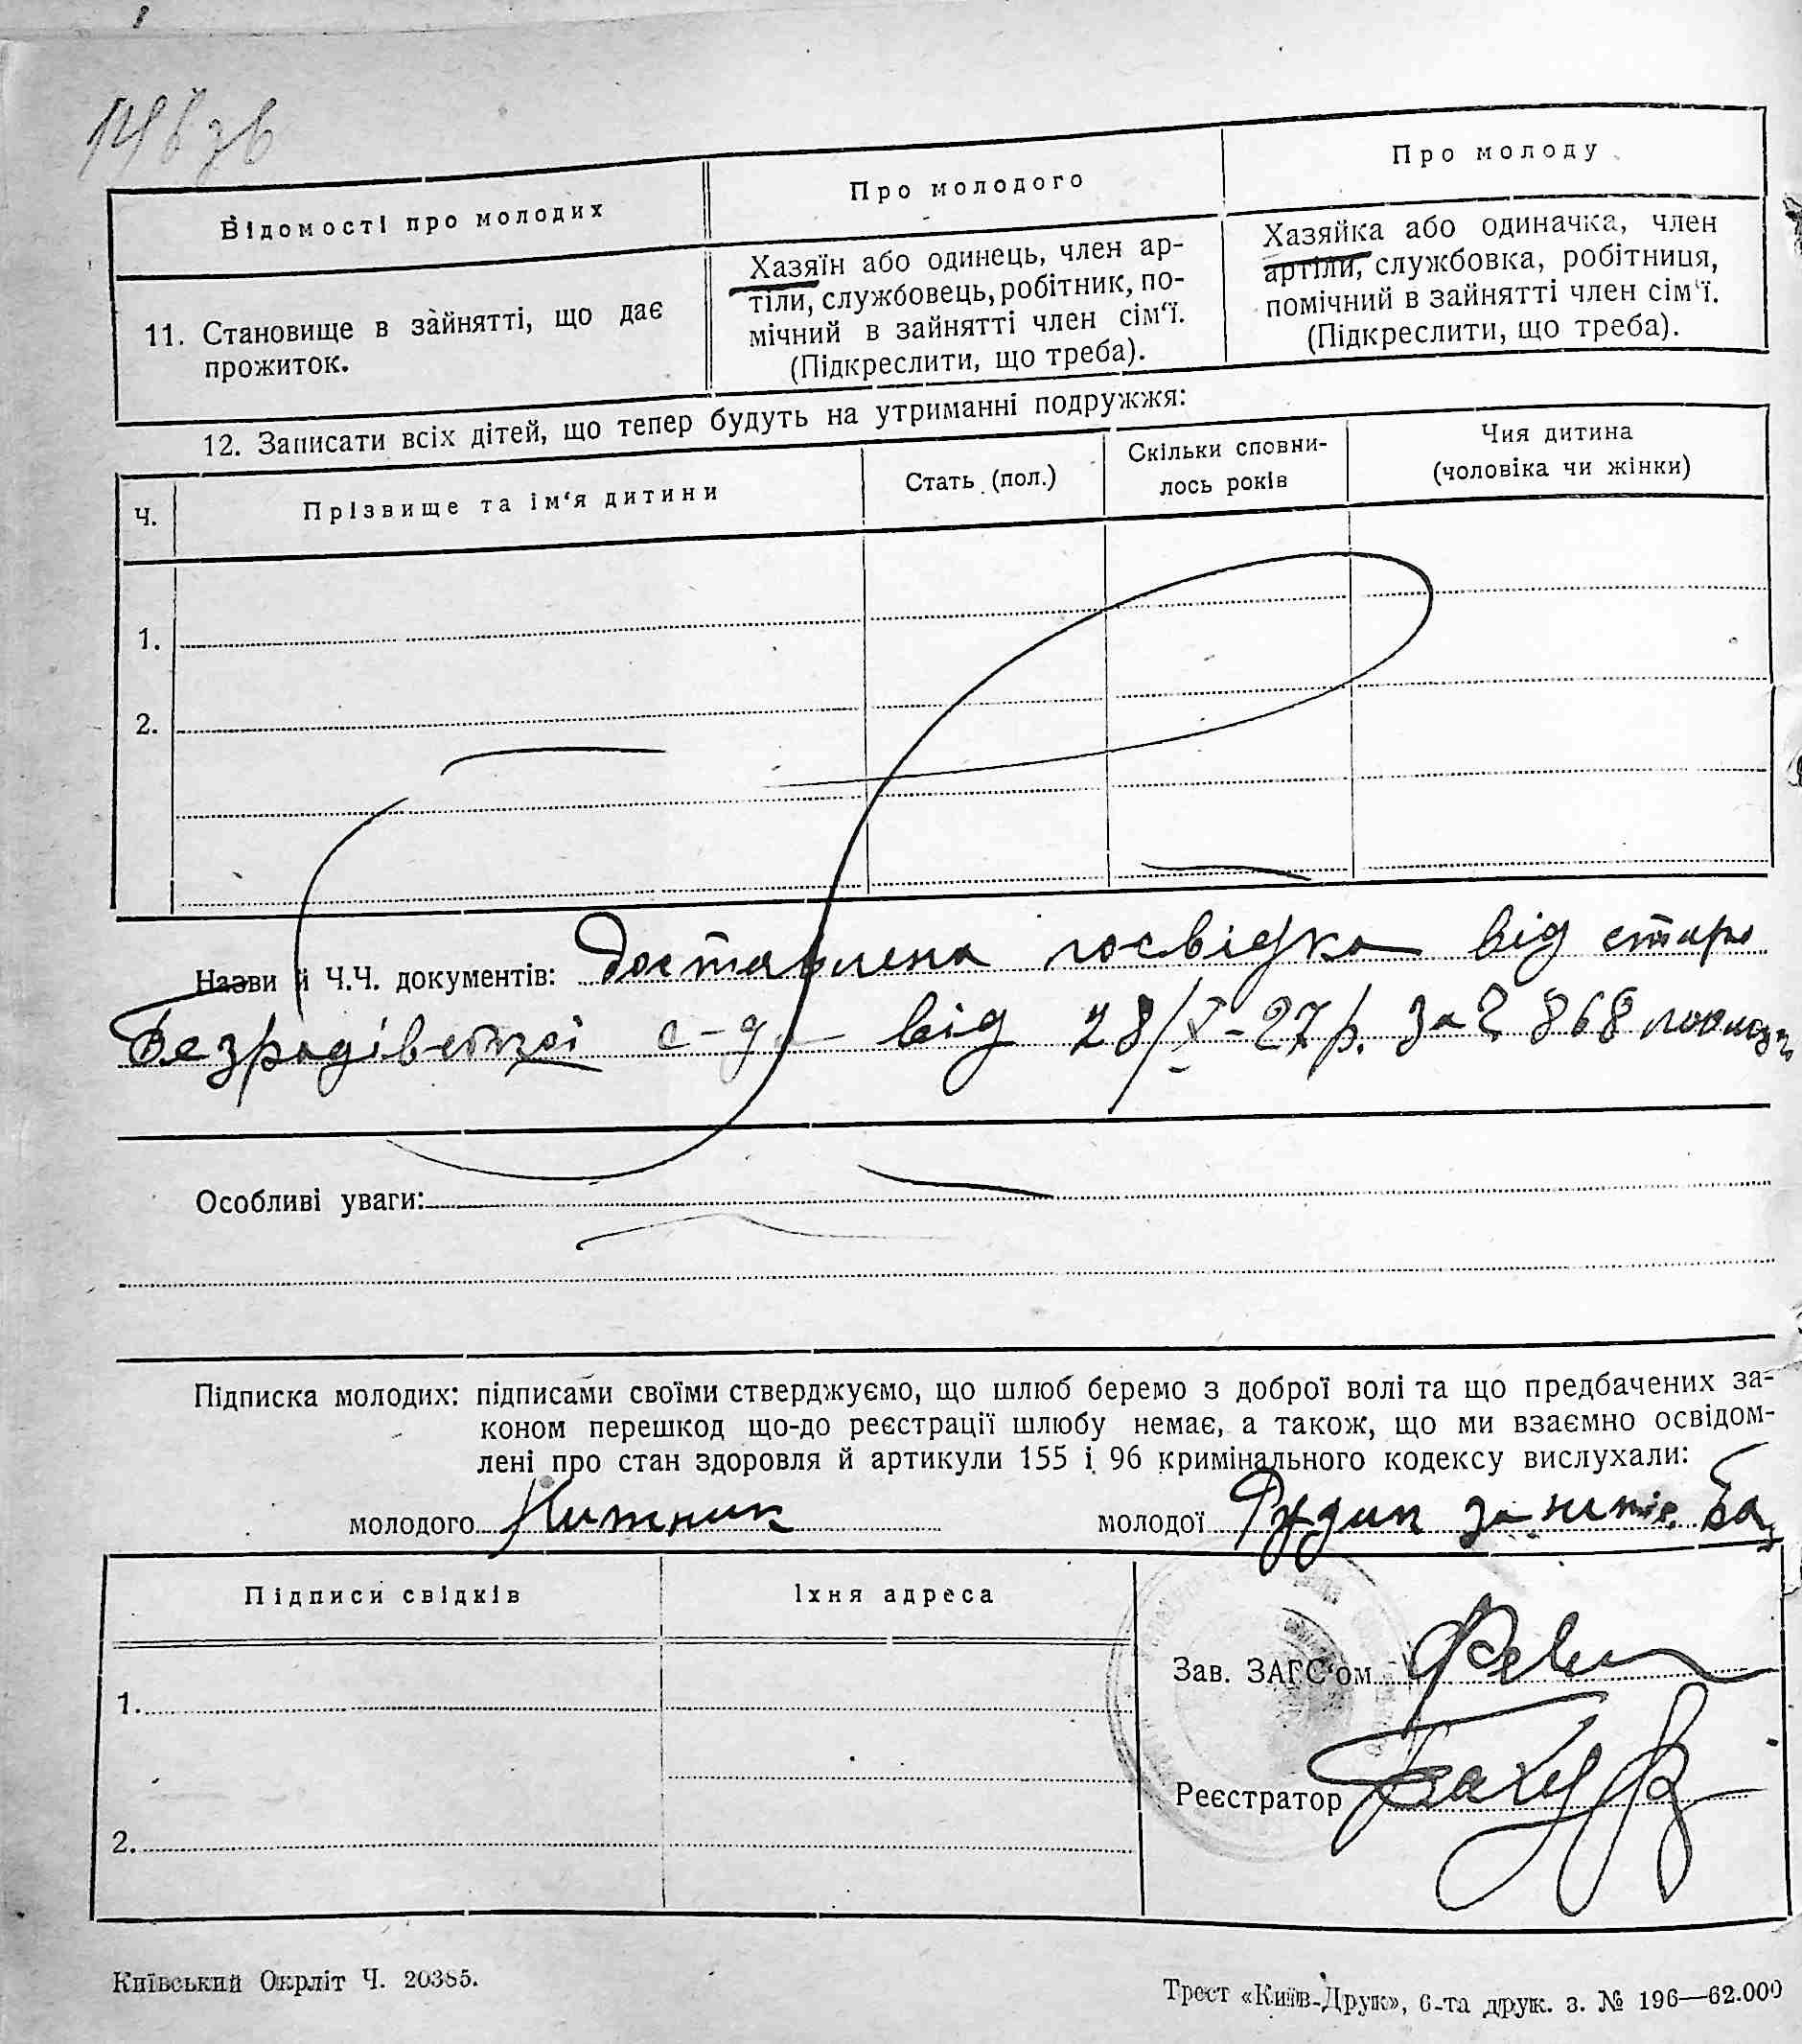 Відомості про молодих
Про молодого
Про молоду
11. Становище в зайнятті, що дає
прожиток.
Хазяїн або одинець, член ар-
тіли, службовець, робітник, по-
мічний в зайнятті член сім‘ї.
(Підкреслити, що треба).
Хазяйка або одиначка, член
артіли, службовка, робітниця,
помічний в зайнятті член сім‘ї.
(Підкреслити, що треба).
12. Записати всіх дітей, що тепер будуть на утриманні подружжя:
Ч.
Прізвище та ім‘я дитини
Стать (пол.)
Скільки сповни-
лось років
Чия дитина
(чоловіка чи жінки)
1.
2.
Назви й Ч.Ч. документів: Доставлена посвідка від старо
Безрадівської с-ди від 28/X-27р. за 868
Особливі уваги:
Підписка молодих: підписами своїми стверджуємо, що шлюб беремо з доброї волі та що предбачених за-
коном перешкод що-до реєстрації шлюбу немає, а також, що ми взаємно освідом-
лені про стан здоровля й артикули 155 і 96 кримінального кодексу вислухали:
молодого
молодої
Підписи свідків
Їхня адреса
1.
2.
Зав. ЗАГС‘ом
Реєстратор
Київський Окрліт Ч. 20385.
Трест «Київ-Друк», 6-та друк. з. № 196—62.000